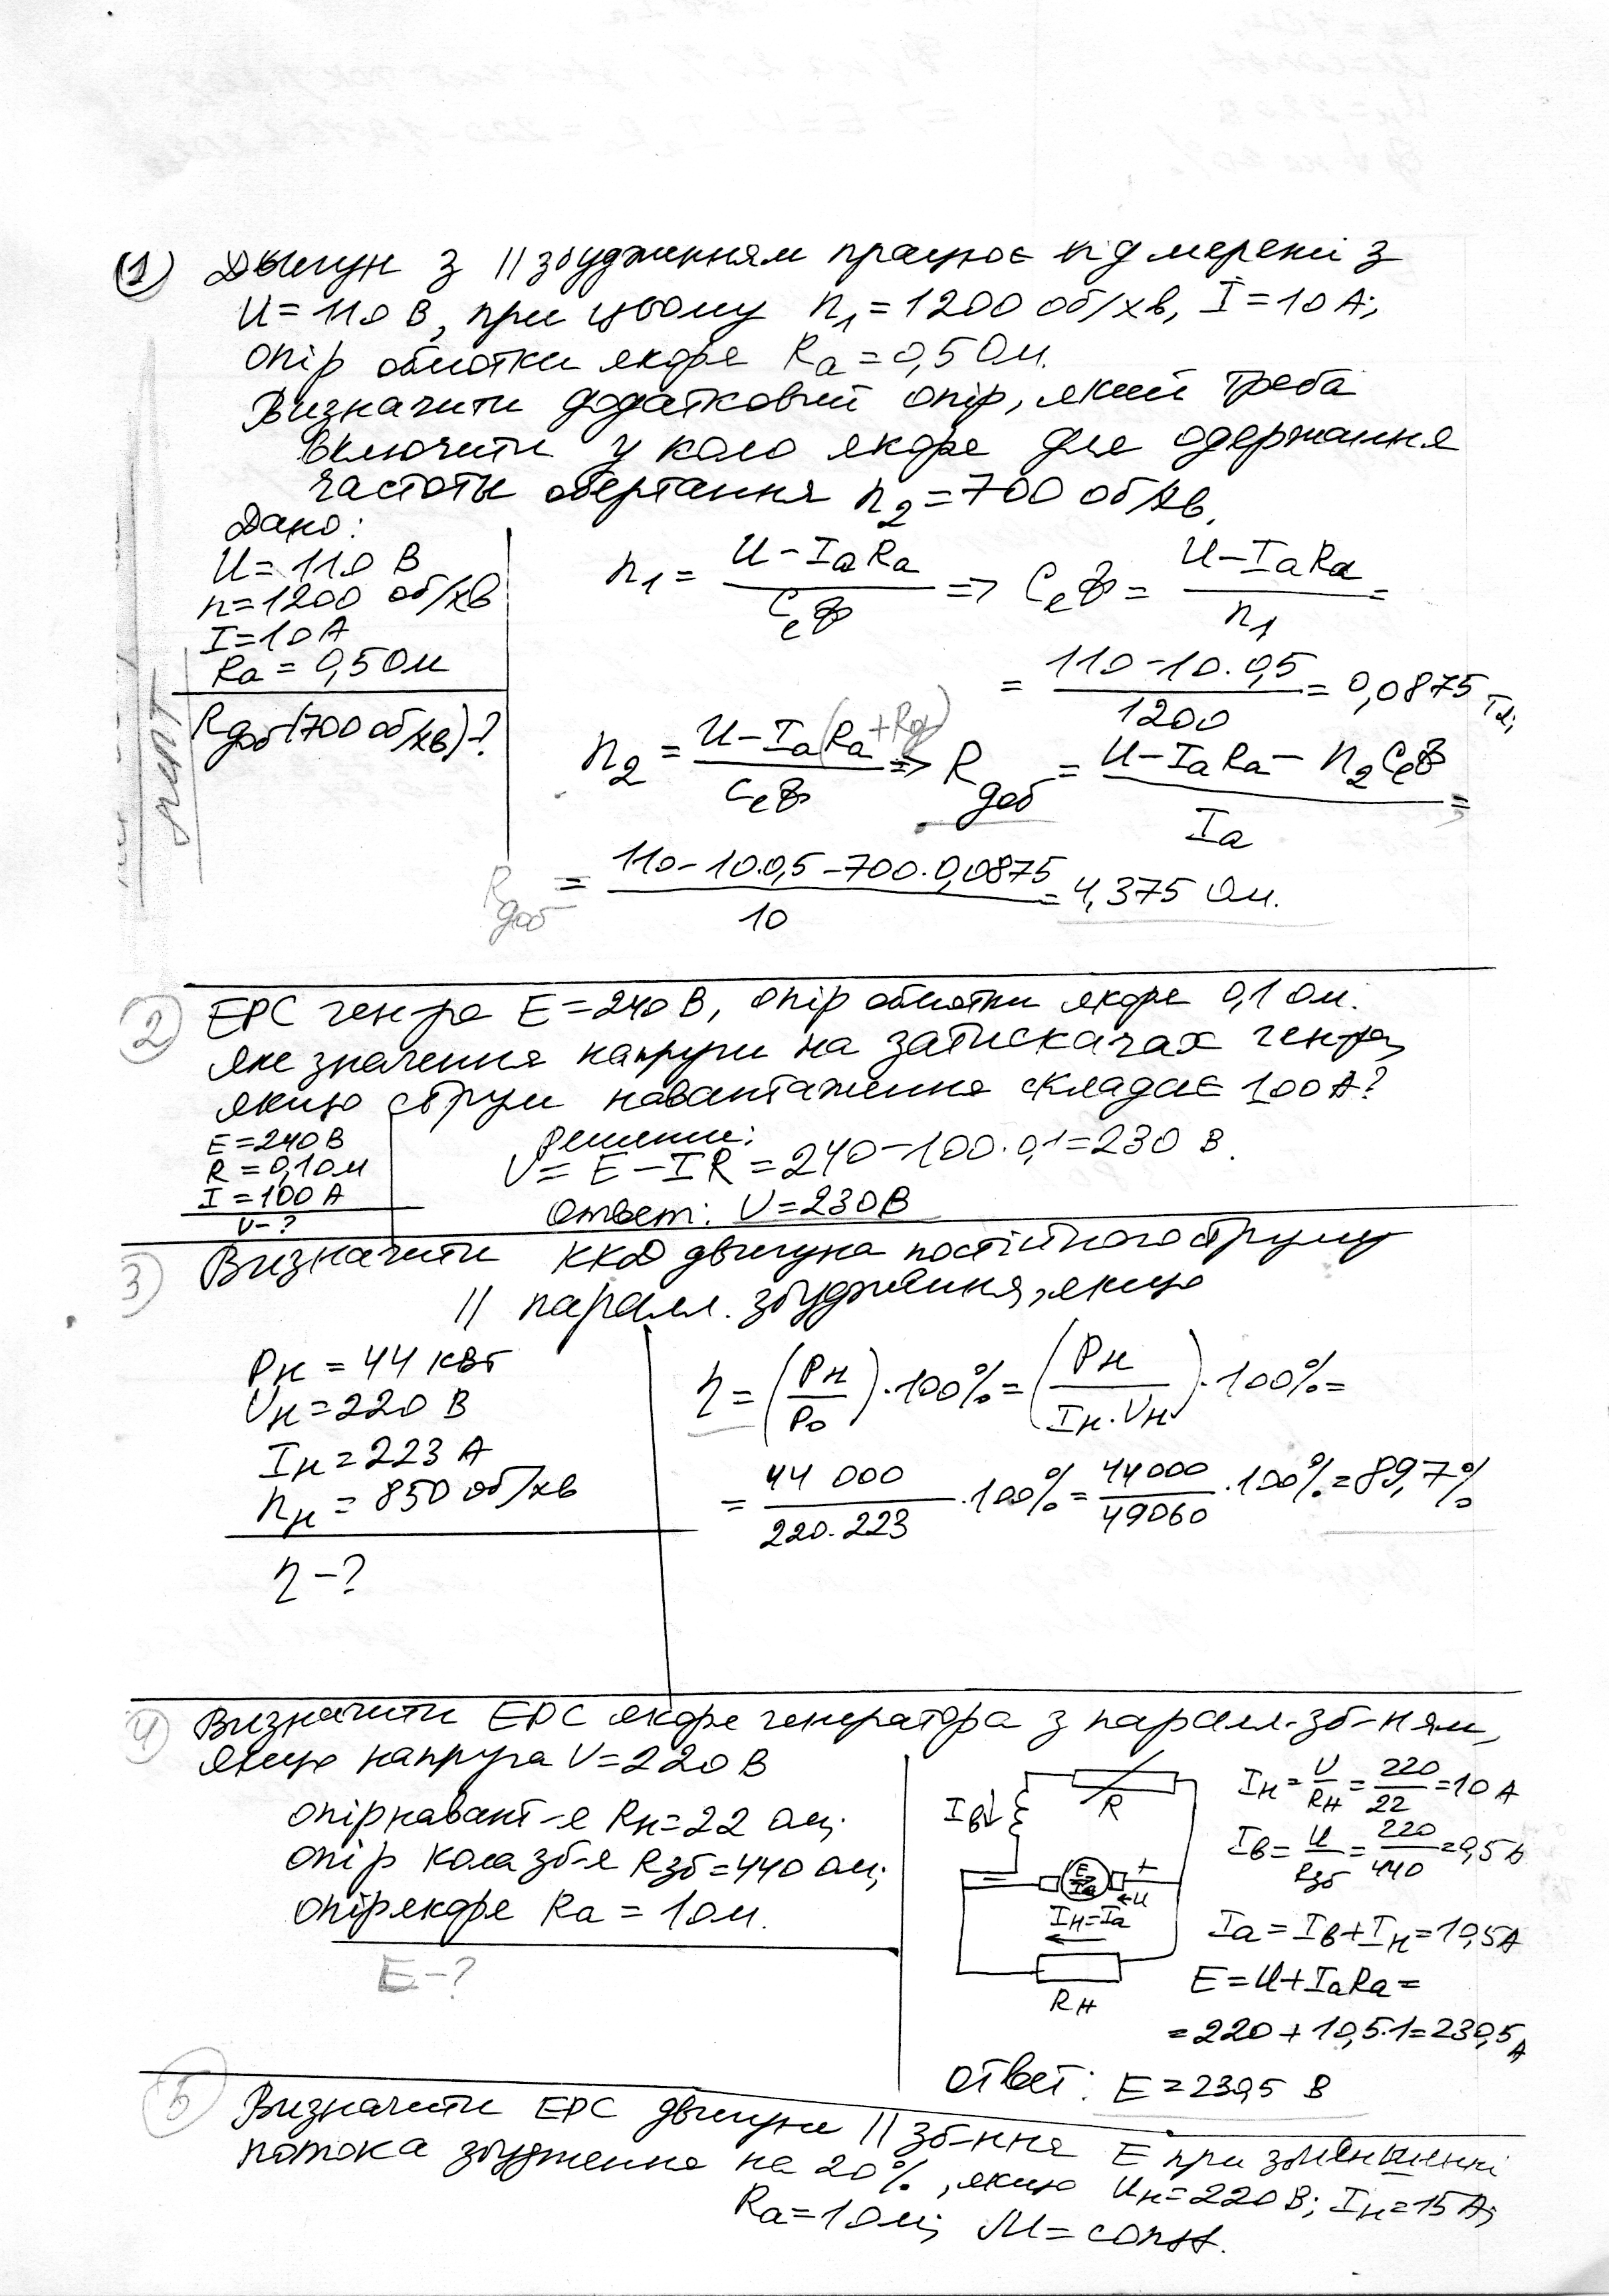 (1) Двигун з || збудженням працює від мережі з
U = 110 В, при цьому n₁ = 1200 об/хв, I = 10 А;
опір обмотки якоря Ra = 0,5 Ом.
Визначити додатковий опір, який треба
включити у коло якоря для одержання
частоты обертання n₂ = 700 об/хв.
Дано:
U = 110 В
n = 1200 об/хв
I = 10 А
Ra = 0,5 Ом
Rдоб (700 об/хв) - ?
n₁ = (U - IaRa) / (CeФ) => CeФ = (U - IaRa) / n₁ =
= (110 - 10·0,5) / 1200 = 0,0875
n₂ = (U - Ia(Ra + Rд)) / (CeФ) => Rдоб = (U - IaRa - n₂CeФ) / Ia =
Rдоб = (110 - 10·0,5 - 700·0,0875) / 10 = 4,375 Ом.
2) ЕРС ген-ра E = 240 В, опір обмотки якоря 0,1 Ом.
яке значення напруги на затискачах ген-ра,
якщо струм навантаження складає 100 А?
E = 240 В
R = 0,1 Ом
I = 100 А
U - ?
решение:
U = E - IR = 240 - 100·0,1 = 230 В.
Ответ: U = 230 В
3) Визначити ККД двигуна постійного струму
|| паралл. збудження, якщо
Pн = 44 кВт
Uн = 220 В
Iн = 223 А
nн = 850 об/хв
η - ?
η = (Pн / P₀)·100% = (Pн / (Iн·Uн))·100% =
= 44 000 / (220·223) ·100% = 44000 / 49060 ·100% = 89,7%
4) Визначити ЕРС якоря генератора з паралл. зб-ням,
якщо напруга U = 220 В
опір навант-я Rн = 22 Ом;
опір кола зб-я Rзб = 440 Ом;
опір якоря Ra = 1 Ом.
E - ?
Iв↓
R
E
Ia
+
-
←U
Iн = Ia
Rн
Iн = U / Rн = 220 / 22 = 10 А
Iв = U / Rзб = 220 / 440 = 0,5 А
Ia = Iв + Iн = 10,5 А
E = U + IaRa =
= 220 + 10,5·1 = 230,5 А
Ответ: E = 230,5 В
5) Визначити ЕРС двигуна || зб-ння E при зменшенні
потока збудження на 20%, якщо Uн = 220 В; Iн = 15 А;
Ra = 1 Ом; M = const.